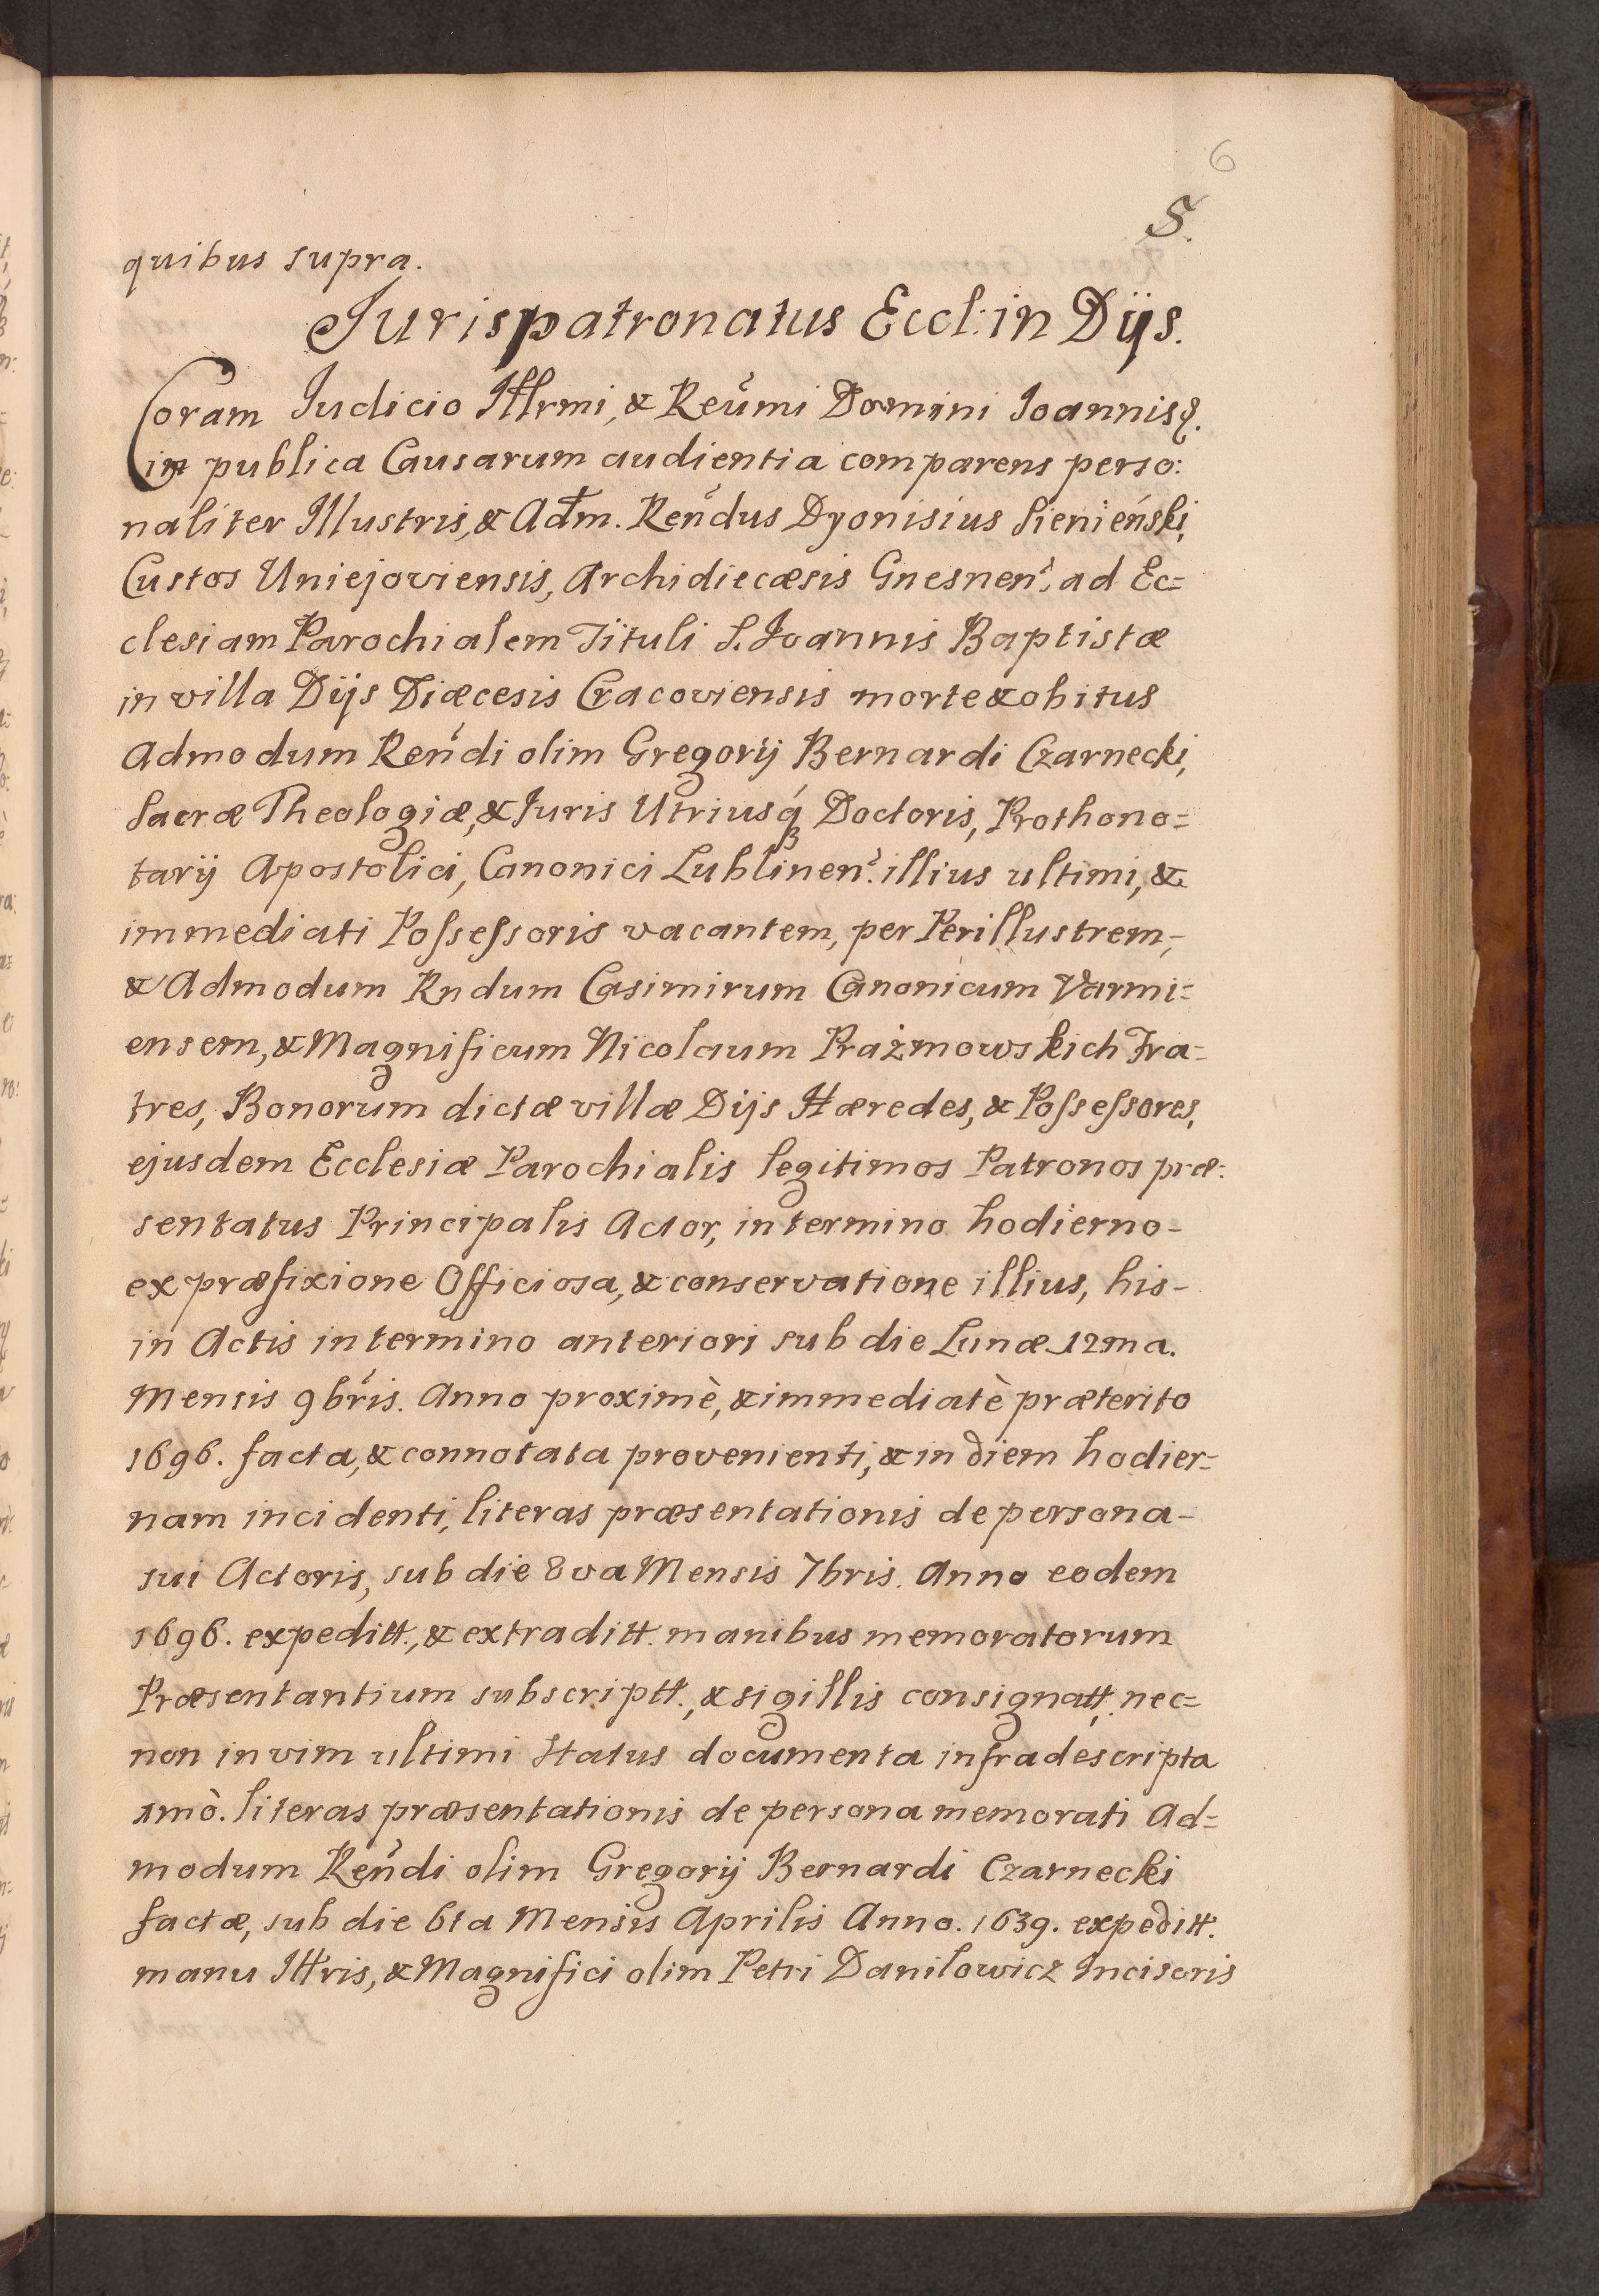 6
5.
quibus supra.
Jurispatronatus Eccl: in Dÿs.
Coram Judicio Illrmi, & Reůmi Domini Joannis &.
in publica Causarum audientia comparens perso:
naliter Illustris, & Adm. Reńdus Dyonisius Sienieński,
Custos Uniejoviensis, Archidiecæsis Gnesnen: ad Ec=
clesiam Parochialem Tituli S. Joannis Baptistæ
in villa Dijs Diæcesis Cracoviensis morte & obitus
Admodum Reńdi olim Gregorij Bernardi Czarnecki,
Sacræ Theologiæ, & Juris Utriusq́ Doctoris, Prothono=
tarij Apostolici, Canonici Lublinen: illius ultimi, &
immediati Poſseſsoris vacantem, per Perillustrem,-
& Admodum Rndum Casimirum Canonicum Varmi=
ensem, & Magnificum Nicolaum Prażmowskich Fra=
tres, Bonorum dictæ villæ Dijs Hæredes, & Poſseſsores,
ejusdem Ecclesiæ Parochialis legitimos Patronos præ:
sentatus Principalis Actor, in termino hodierno-
ex præfixione Officiosa, & conservatione illius, his-
in Actis in termino anteriori sub die Lunæ 12ma.
Mensis 9bŕis. Anno proximè, & immediatè præterito
1696. facta, & connotata provenienti, & in diem hodier=
nam incidenti, literas præsentationis de persona-
sui Actoris, sub die 8va Mensis 7bris. Anno eodem
1696. expeditt., & extraditt. manibus memoratorum
Præsentantium subscriptt., & sigillis consignatt, nec=
non in vim ultimi Status documenta infradescripta
1mò. literas præsentationis de persona memorati Ad=
modum Reńdi olim Gregorij Bernardi Czarnecki
factæ, sub die 6ta Mensis Aprilis Anno. 1639. expeditt.
manu Illris, & Magnifici olim Petri Danilowicz Incisoris